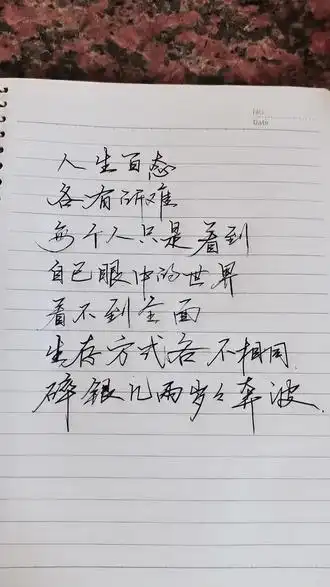 No.
Date
人生百态
各有所难
每个人只是看到
自己眼中的世界
看不到全面
生存方式各不相同.
碎银几两岁々奔波.